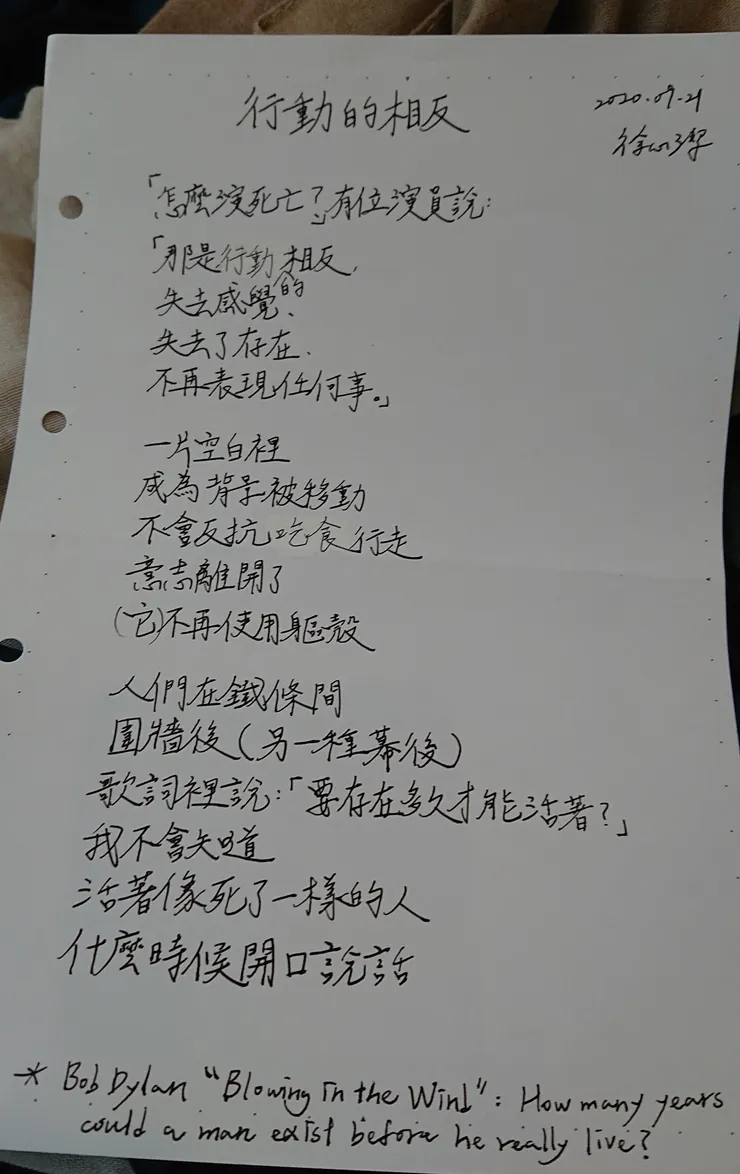 行動的相反
2020.09.21
徐心潔
「怎麼演死亡？」有位演員說：
「那是行動的相反，
失去感覺、
失去了存在、
不再表現任何事。」
一片空白裡
成為背景被移動
不會反抗吃食行走
意志離開了
(它)不再使用軀殼
人們在鐵條間
圍牆後(另一種幕後)
歌詞裡說：「要存在多久才能活著？」
我不會知道
活著像死了一樣的人
什麼時候開口說話
* Bob Dylan "Blowing in the Wind": How many years
could a man exist before he really live?